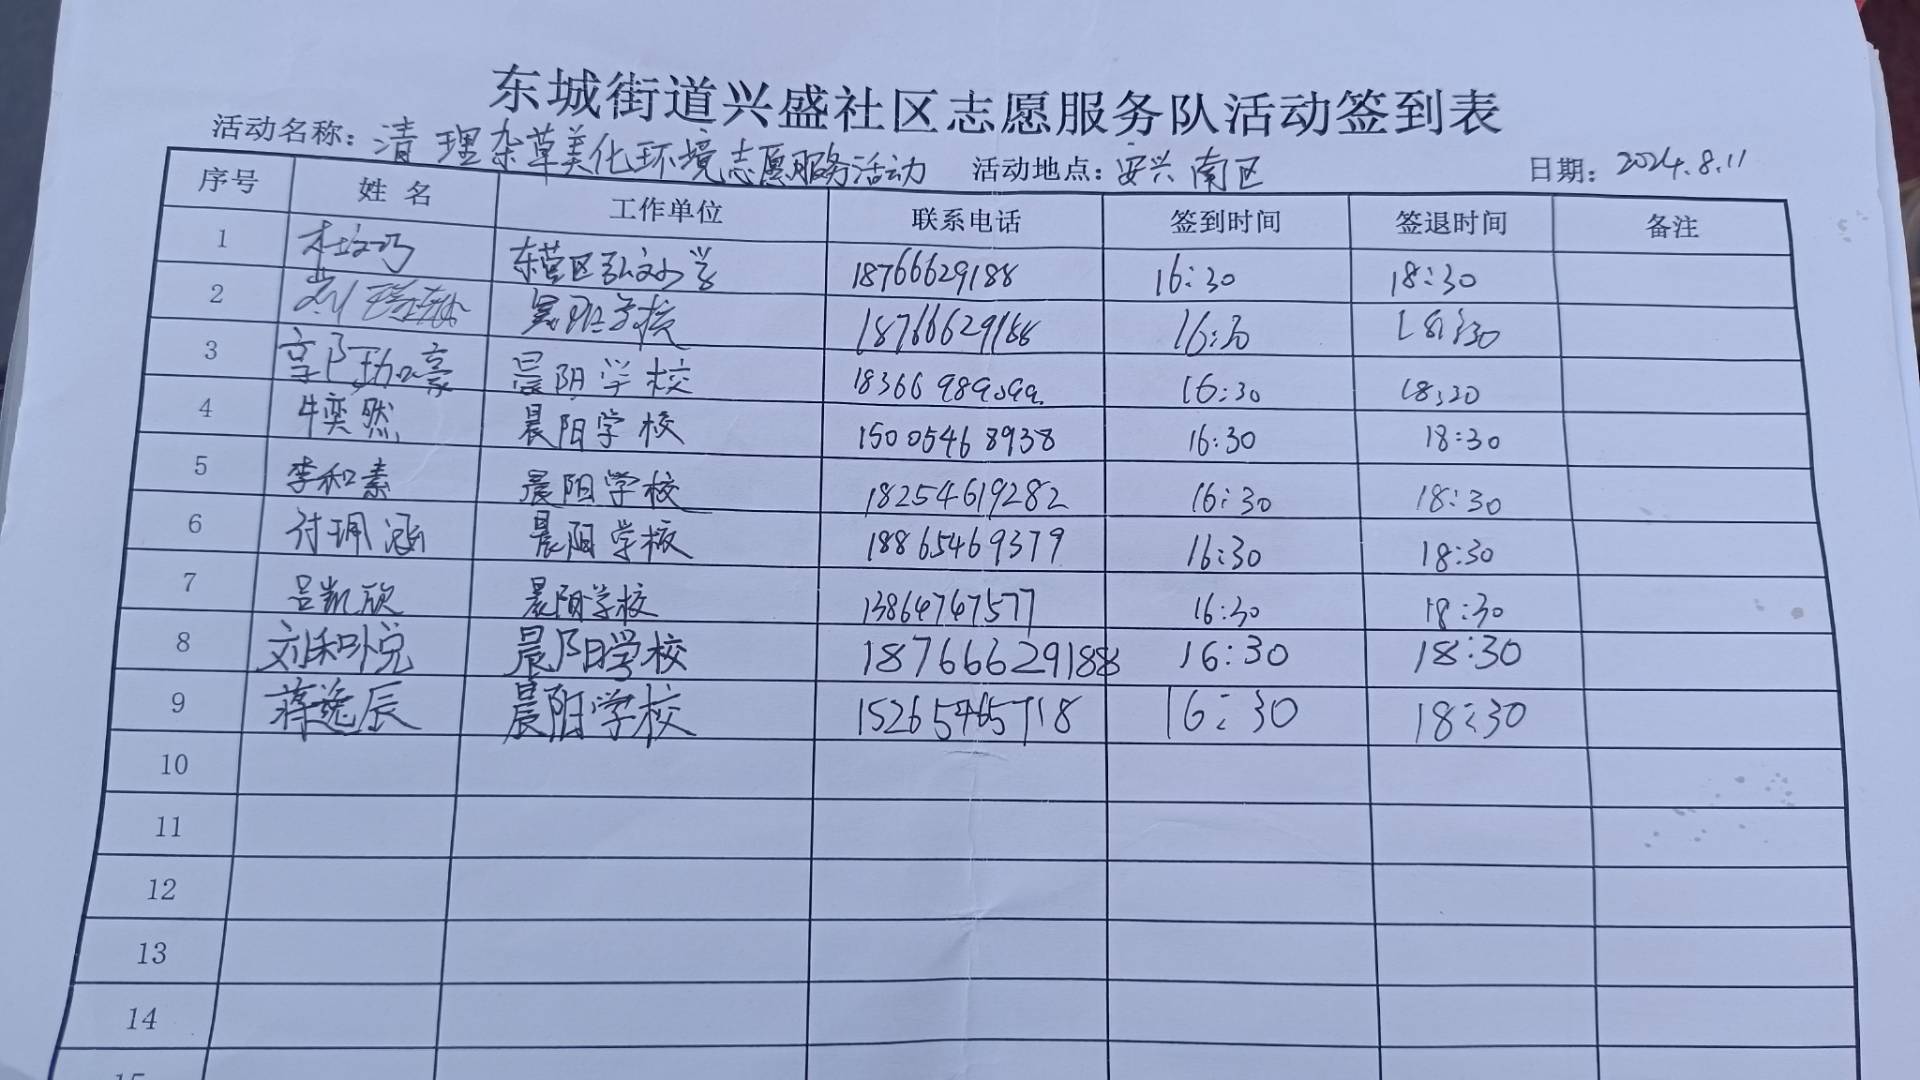 东城街道兴盛社区志愿服务队活动签到表
活动名称：清理杂草美化环境志愿服务活动 活动地点：安兴南区 日期：2024.8.11
序号 姓名 工作单位 联系电话 签到时间 签退时间 备注
1 东营区弘文小学 18766629188 16:30 18:30
2 晨阳学校 18766629188 16:30 18:30
3 晨阳学校 16:30
4 牛奕然 晨阳学校 15005468938 16:30 18:30
5 李和素 晨阳学校 18254619282 16:30 18:30
6 付珮涵 晨阳学校 18865469379 16:30 18:30
7 吕凯欣 晨阳学校 13864767577 16:30 18:30
8 晨阳学校 18766629188 16:30 18:30
9 蒋逸辰 晨阳学校 15265465718 16:30 18:30
10
11
12
13
14
15